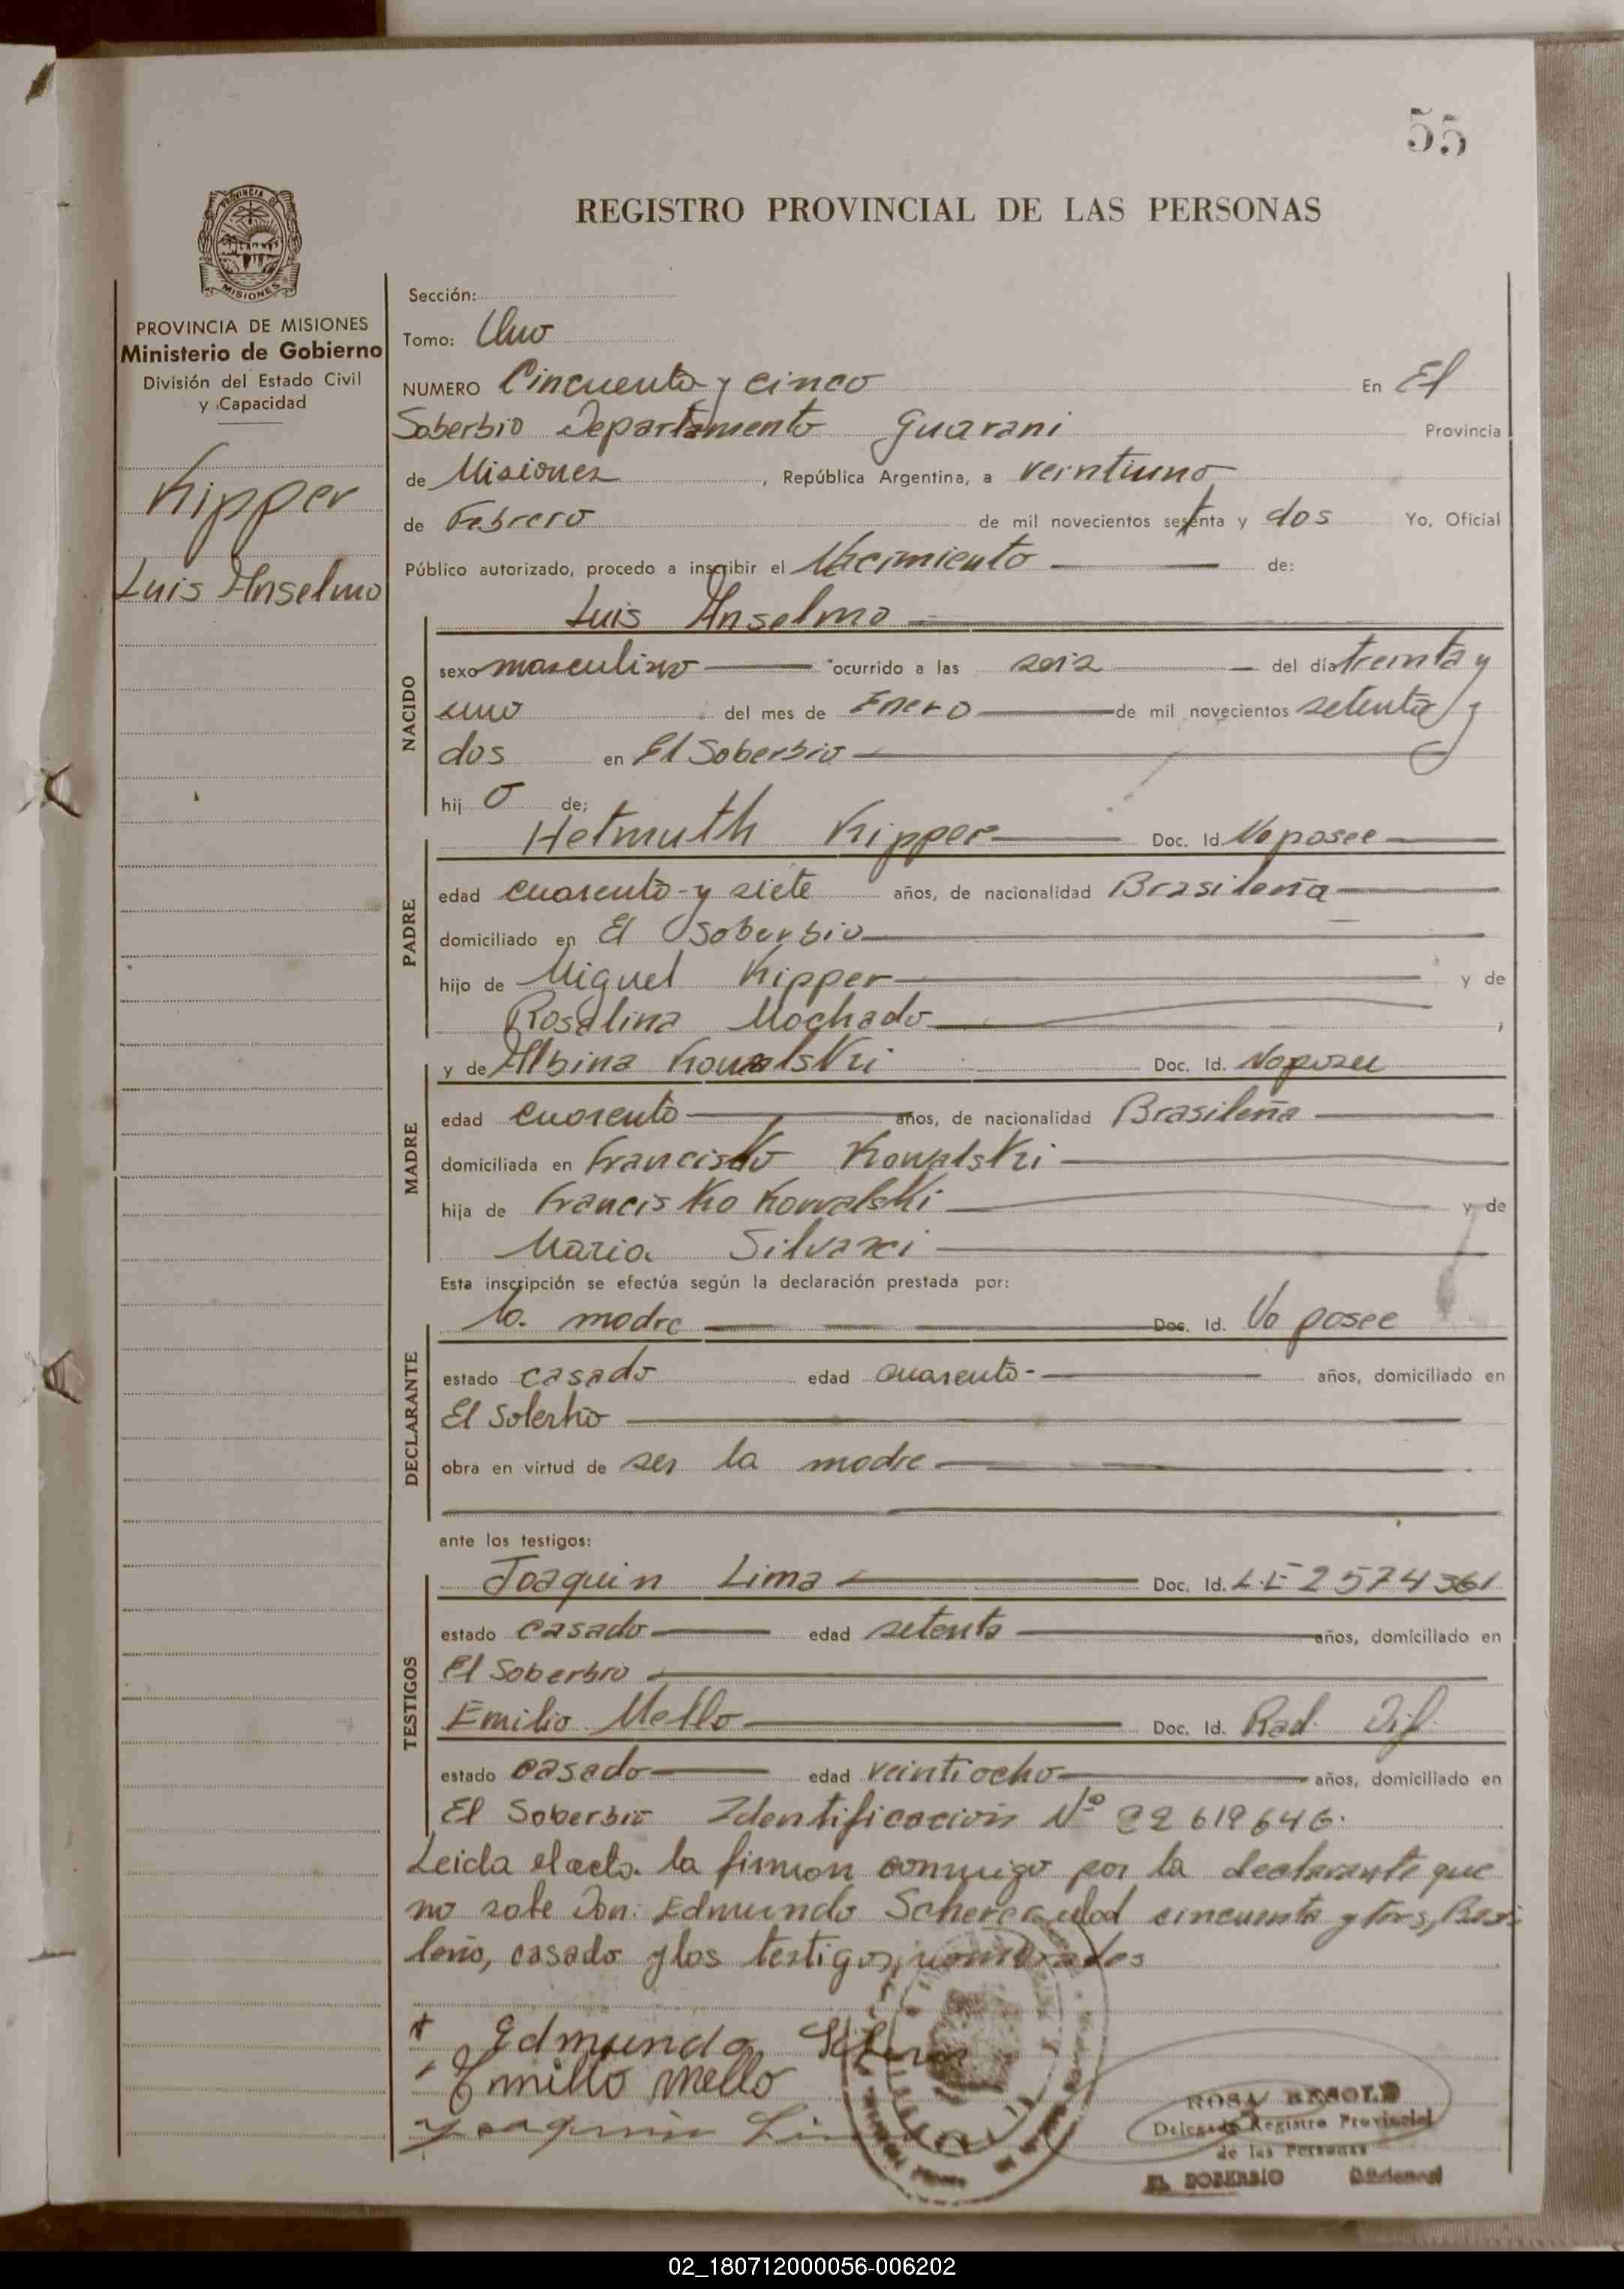 55
REGISTRO PROVINCIAL DE LAS PERSONAS
PROVINCIA DE
MISIONES
PROVINCIA DE MISIONES
Ministerio de Gobierno
División del Estado Civil
y Capacidad
Kipper
Luis Anselmo
Sección:
Tomo: Uno
NUMERO Cincuenta y cinco En El
Soberbio Departamento Guarani Provincia
de Misiones, República Argentina, a veintiuno
de Febrero de mil novecientos setenta y dos Yo, Oficial
Público autorizado, procedo a inscribir el Nacimiento de:
Luis Anselmo
NACIDO
sexo masculino ocurrido a las seis del día treinta y
uno del mes de Enero de mil novecientos setenta y
dos en El Soberbio
hij o de:
Helmuth Kipper Doc. Id. No posee
PADRE
edad cuarenta y siete años, de nacionalidad Brasileña
domiciliado en El Soberbio
hijo de Miguel Kipper y de
Rosalina Machado
y de Albina Kowalski Doc. Id. No posee
MADRE
edad cuarenta años, de nacionalidad Brasileña
domiciliada en Francisko Kowalski
hija de Francisko Kowalski y de
Maria
Esta inscripción se efectúa según la declaración prestada por:
la madre Doc. Id. No posee
DECLARANTE
estado casado edad cuarenta años, domiciliado en
El Soberbio
obra en virtud de ser la madre
ante los testigos:
Joaquin Lima Doc. Id. L.E 2574361
TESTIGOS
estado casado edad setenta años, domiciliado en
El Soberbio
Emilio Mello Doc. Id. Rad. Dif.
estado casado edad veintiocho años, domiciliado en
El Soberbio Identificación Nº
Leida el acta la firman conmigo por la declarante que
no sabe Don: Edmundo cincuenta y tres, Brasi
leño, casado y los testigos nombrados
Edmundo
Emilio Mello
Joaquin Lima
ROSA
Delegada Registro Provincial
de las Personas
EL SOBERBIO Misiones
02_180712000056-006202